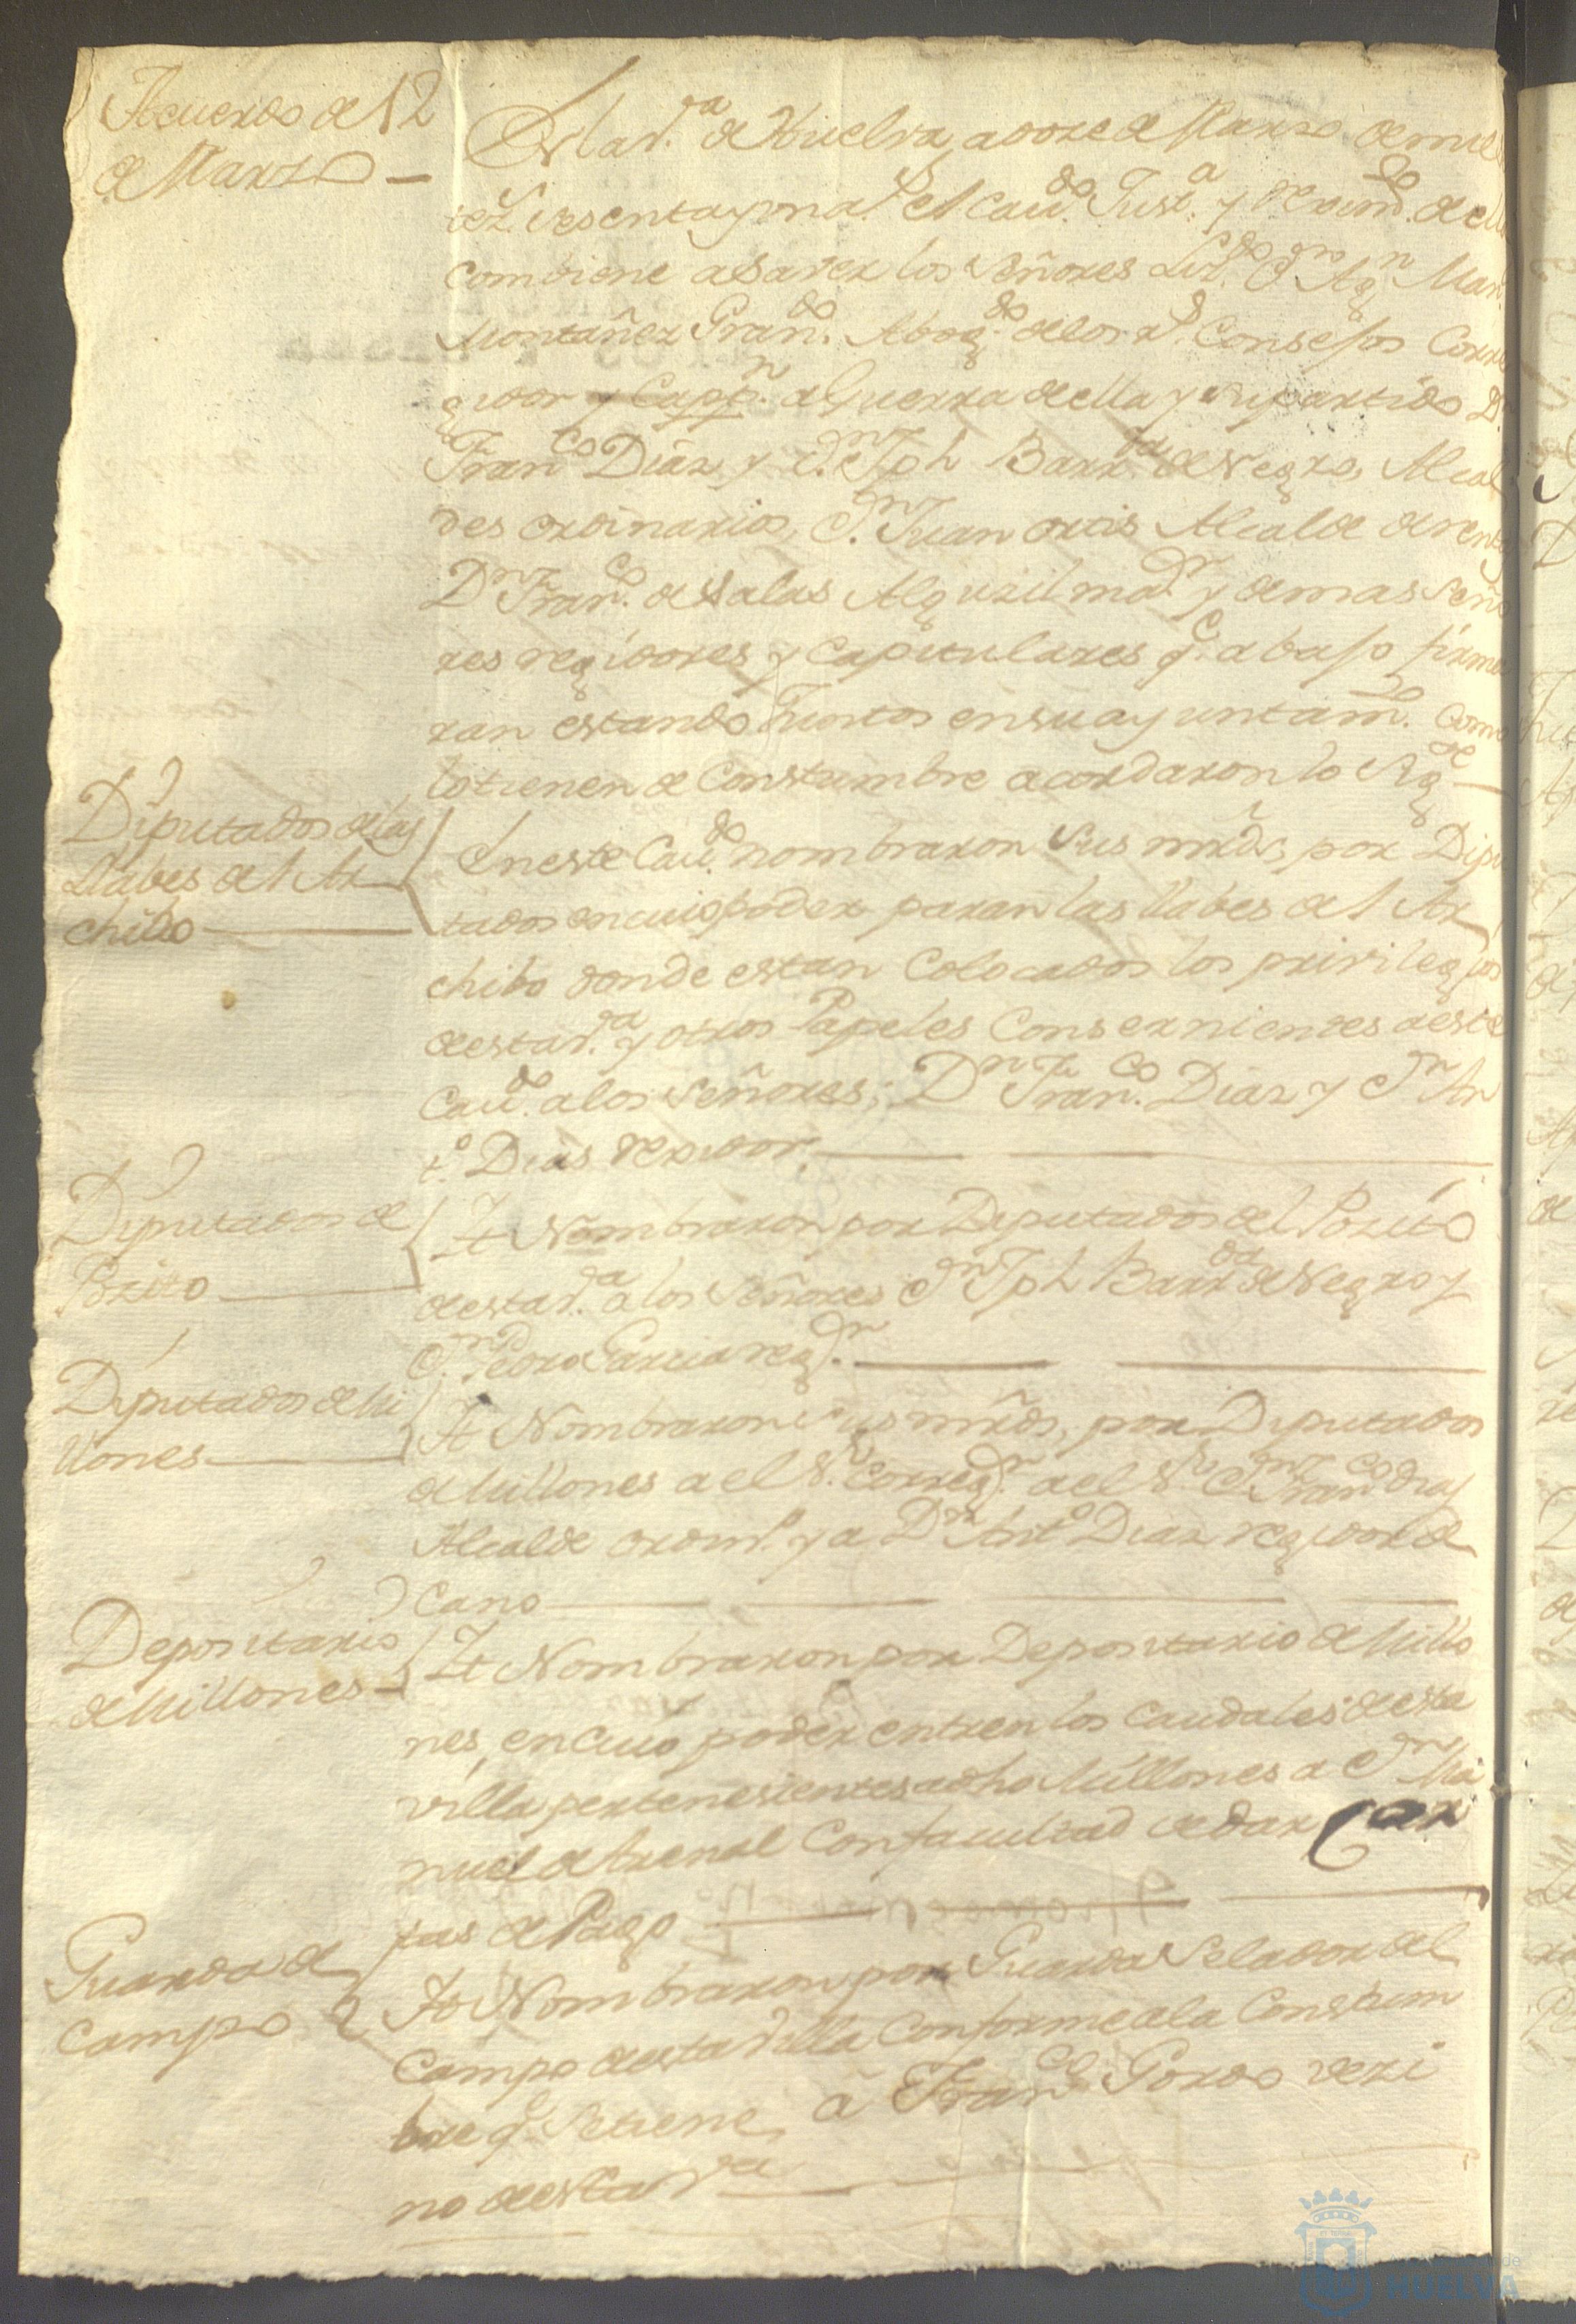 Acuerdo de 12
de Marzo
En la v.ª de Huelva a doze de Marzo de mill
setz.s sesenta y un a.s el Cau.do Just.ª y Reximi.to de ella
combiene a saver los Señores Liz.do D.n Ag.n Man.l
Montañez Gran.do Abog.do de los R.s Consejos Corre
gidor y Capp.n a Guerra de ella y su partido D.n
Fran.co Diaz y D.n Jph Barr.da de Negro, Alcal
des ordinarios, D.n Juan ortis Alcalde de renta
D.n Fran.co de Salas Alguzil ma.r y demas Seño
res regidores y Capitulares q.e abajo firma
ran estando Juntos en su ayuntam.to como
lo tienen de Constumbre acordaron lo sig.te
Diputados de las
llabes del Ar
chibo
En este Cau.do nombraron sus mrds, por Dipu
tados en cuio poder paran las llabes del Ar
chibo donde estan Colocados los privilegios
de esta v.ª y otros Papeles Consernientes a este
Cau.do a los señores; D.n Fran.co Diaz y D.n An
t.o Dias rexidor
Diputados de
Pozito
It Nombraron por Diputados del Pozito
de esta v.ª a los Señores D.n Jph Barr.da de Negro y
D.n Pedro Garcia reg.r
Diputados de Mi
llones
It Nombraron sus mrds, por Diputados
de Millones a el S.r Correg.r a el S.r D.n Fran.co Dias
Alcalde ordin.o y a D.n Ant.o Diaz regidor de
cano
Depositario
de Millones
It Nombraron por Depositario de Millo
nes, en cuio poder entren los caudales de esta
villa pertenesientes a dho Millones a D.n Ma
nuel de Arenal Con facultad de dar Car
tas de Pago
Guarda de
Campo
It Nombraron por Guarda Selador del
Campo de esta Villa Conforme a la Constum
bre q.e Se tiene, â Fran.co Gordo vezi
no de esta v.ª
HUELVA